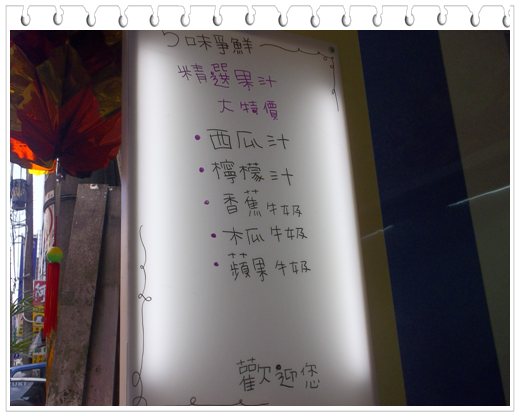 口味爭鮮
精選果汁
大特價
西瓜汁
檸檬汁
香蕉牛奶
木瓜牛奶
蘋果牛奶
歡迎您